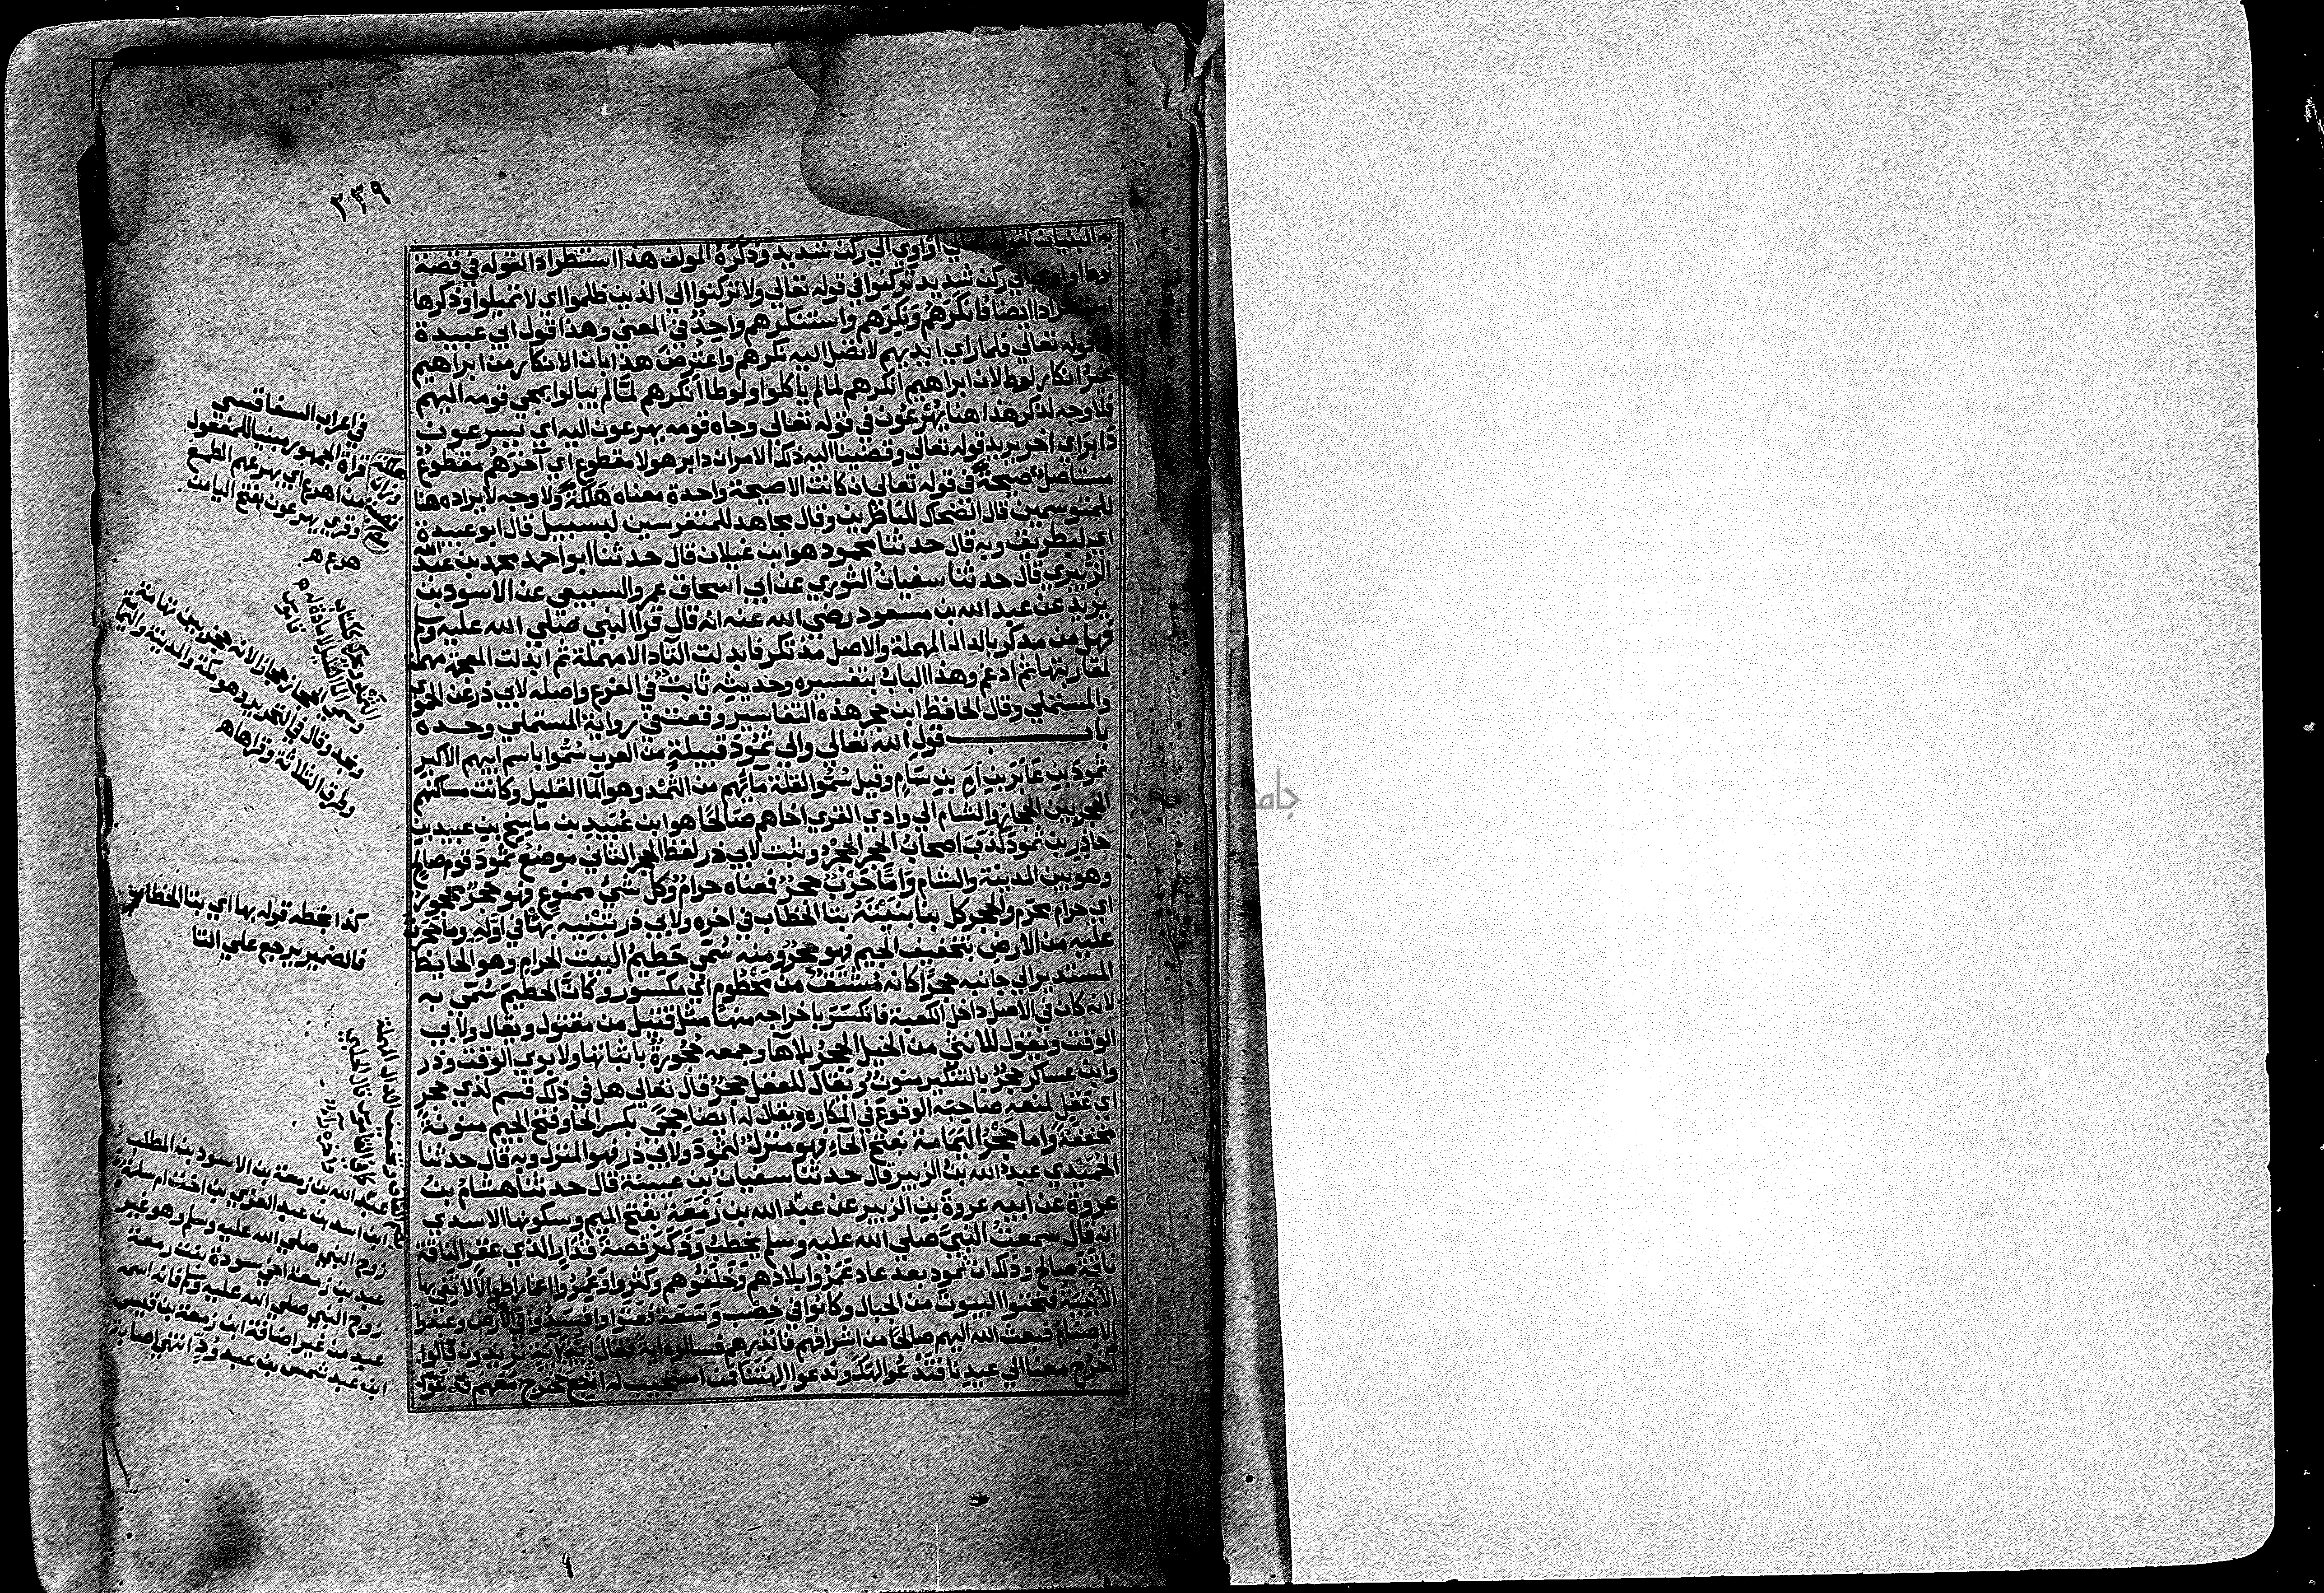 ٢٣٩
به البنيان لقوله تعالي او اوي الي ركن شديد وذكره المولف هذا استطرادا لقوله في قصة
لوط او اوي الي ركن شديد تركنوا في قوله تعالي ولا تركنوا الي الذين ظلموا اي لا تميلوا وذكرها
استطرادا ايضا فانكرهم ونكرهم واستنكرهم واحد في المعني وهذا قول ابي عبيدة
في قوله تعالي فلما راي ايديهم لا تصل اليه نكرهم واعترض هذا بان الانكار من ابراهيم
غير انكار لوط لان ابراهيم انكرهم لما لم ياكلوا ولوطا انكرهم لما لم يبالوا بمجي قومه اليهم
فلا وجه لذكر هذا هنا يهرعون في قوله تعالي وجاه قومه يهرعون اليه اي يسرعون
دابر اي اخر يريد قوله تعالي وقضينا اليه ذلك الامر ان دابر هولا مقطوع اي آخرهم مقطوع
مستاصل صيحة في قوله تعالي ان كانت الا صيحة واحدة معناه هلكة ولا وجه لايراده هنا
للمتوسمين قال الضحاك للناظرين وقال مجاهد للمتفرسين لبسبيل قال ابو عبيدة
اي لبطريق وبه قال حدثنا محمود هو ابن غيلان قال حدثنا ابو احمد محمد بن عبد الله
الزبيري قال حدثنا سفيان الثوري عن ابي اسحاق عمرو السبيعي عن الاسود بن
يزيد عن عبد الله بن مسعود رضي الله عنه انه قال قرا النبي صلي الله عليه وسلم
فهل من مدكر بالدال المهملة والاصل مذتكر فابدلت التاء دالا مهملة ثم ابدلت المعجمة مهملة
لمقاربتها ثم ادغم وهذا الباب بتفسيره وحديثه ثابت في الفرع واصله لابي ذر عن الحموي
والمستملي وقال الحافظ ابن حجر هذه التفاسير وقعت في رواية المستملي وحده
باب قول الله تعالي والي ثمود قبيلة من العرب سموا باسم ابيهم الاكبر
ثمود بن عابر بن ارم بن سام وقيل سموا لقلة مايهم من الثمد وهو الما القليل وكانت مساكنهم
الحجر بين الحجاز والشام الي وادي القري اخاهم صالحا هو ابن عبيد بن ماسح بن عبيد بن
حاذر بن ثمود كذب اصحاب الحجر الحجر وثبت لابي ذر لفظ الحجر الثاني موضع ثمود قوم صالح
وهو بين المدينة والشام واما حرث حجر فمعناه حرام وكل شي ممنوع فهو حجر محجور
اي حرام محرم والحجر كل بنا بنيته بتا الخطاب في اخره ولابي ذر تبنيه بها في اوله وما حجرت
عليه من الارض بتخفيف الجيم فهو حجر ومنه سمي حطيم البيت الحرام وهو الحايط
المستدير الي جانبه حجرا كانه مشتق من محطوم اي مكسور وكان الحطيم سمي به
لانه كان في الاصل داخل الكعبة فانكسر باخراجه منها مثل قتيل من مقتول ويقال ولابي
الوقت ويقول للانثي من الخيل الحجر بلا هاء وجمعه حجورة باثباتها ولابوي الوقت وذر
وابن عساكر حجر بالتنكير منون ويقال للعقل حجر قال تعالي هل في ذلك قسم لذي حجر
اي عقل لمنعه صاحبه الوقوع في المكاره ويقال له ايضا حجي بكسر الحا وفتح الجيم منونة
مخففة واما حجر اليمامة بفتح الحاء فهو منزل لثمود ولابي ذر فهو المنزل وبه قال حدثنا
الحميدي عبد الله بن الزبير قال حدثنا سفيان بن عيينة قال حدثنا هشام بن
عروة عن ابيه عروة بن الزبير عن عبد الله بن زمعة بفتح الميم وسكونها الاسدي
انه قال سمعت النبي صلي الله عليه وسلم يخطب وذكر قصة قدار الذي عقر الناقة
ناقة صالح وذلك ان ثمود بعد عاد عمروا بلادهم وخلفوهم وكثروا وعمروا اعمارا طوالا لا تفي بها
الابنية فنحتوا البيوت من الجبال وكانوا في خصب وسعة فعتوا وافسدوا في الارض وعبدوا
الاصنام فبعث الله اليهم صالحا من اشرافهم فانذرهم فسالوه اية فقال اية آية تريدون قالوا
اخرج معنا الي عيدنا فتدعو الهك وندعوا الهتنا فمن استجيب له اتبع فخرج معهم فدعوا
في اعراب السفاقسي
قراة الجمهور مبنيا للمفعول
من اهرع اي يهرعهم الطمع
وقري يهرعون بفتح اليا من
هرع هـ
وسمي الحجاز حجازا لانه حجز بين تهامة
ونجد وقال في التحرير وهو مكة والمدينة واليمامة
وطرق الثلاثة وقراها هـ
كذا بخطه قوله بها اي بتا الخطاب
فالضمير يرجع علي التا
عبد الله بن زمعة بن الاسود بن المطلب
ابن اسد بن عبد العزي بن اخت ام سلمة
زوج النبي صلي الله عليه وسلم وهو غير
عبد بن زمعة اخي سودة بنت زمعة
زوج النبي صلي الله عليه وسلم فانه اسمه
عبد من غير اضافة ابن زمعة بن قيس
ابن عبد شمس بن عبد ود انتهي اصابة